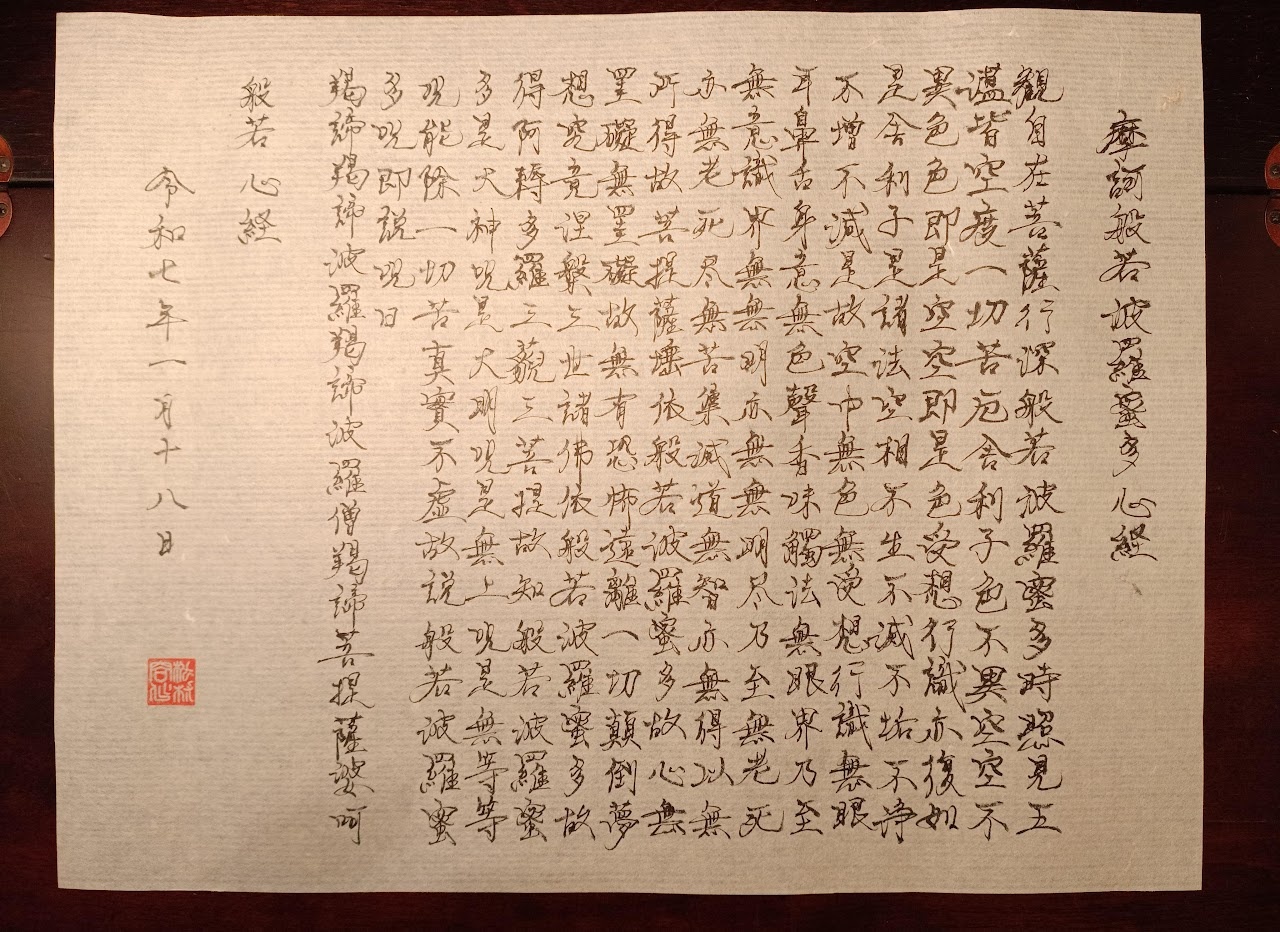 摩訶般若波羅蜜多心経
観自在菩薩行深般若波羅蜜多時照見五
蘊皆空度一切苦厄舎利子色不異空空不
異色色即是空空即是色受想行識亦復如
是舎利子是諸法空相不生不滅不垢不浄
不増不減是故空中無色無受想行識無眼
耳鼻舌身意無色聲香味觸法無眼界乃至
無意識界無無明亦無無明尽乃至無老死
亦無老死尽無苦集滅道無智亦無得以無
所得故菩提薩埵依般若波羅蜜多故心無
罣礙無罣礙故無有恐怖遠離一切顛倒夢
想究竟涅槃三世諸佛依般若波羅蜜多故
得阿耨多羅三藐三菩提故知般若波羅蜜
多是大神呪是大明呪是無上呪是無等等
呪能除一切苦真實不虚故説般若波羅蜜
多呪即説呪曰
羯諦羯諦波羅羯諦波羅僧羯諦菩提薩婆呵
般若心経
令和七年一月十八日